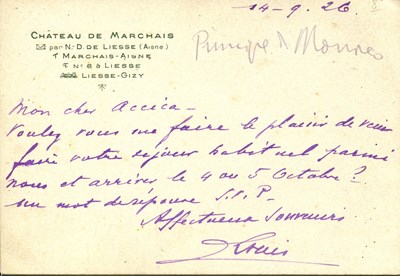 14-9.26
CHÂTEAU DE MARCHAIS
par N.-D. DE LIESSE (Aisne)
MARCHAIS-AISNE
N° 8 À LIESSE
LIESSE-GIZY
Principe di Monaco
Mon cher Accica-
Voulez vous me faire le plaisir de venir
faire votre séjour habituel parmi
nous et arriver le 4 ou 5 Octobre?
Un mot de réponse S.V.P.
Affectueux Souvenirs
Louis